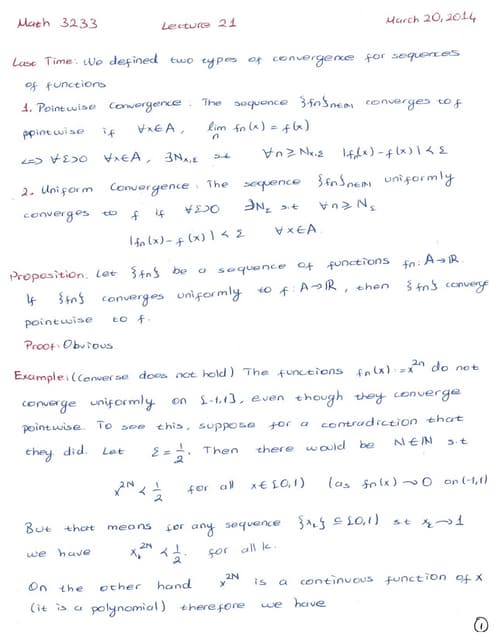 Math 3233 Lecture 21 March 20, 2014
Last Time: We defined two types of convergence for sequences
of functions
1. Pointwise Convergence: The sequence {fn}n∈ℕ converges to f
pointwise if ∀x∈A, lim n fn(x) = f(x)
⟺ ∀ε>0 ∀x∈A, ∃Nx,ε s.t ∀n≥Nx,ε |fn(x)-f(x)|<ε
2. Uniform Convergence: The sequence {fn}n∈ℕ uniformly
converges to f if ∀ε>0 ∃Nε s.t ∀n≥Nε
|fn(x)-f(x)|<ε ∀x∈A.
Proposition: Let {fn} be a sequence of functions fn: A→ℝ.
If {fn} converges uniformly to f: A→ℝ, then {fn} converge
pointwise to f.
Proof: Obvious
Example: (Converse does not hold) The functions fn(x)=x^2n do not
converge uniformly on [-1,1], even though they converge
pointwise. To see this, suppose for a contradiction that
they did. Let ε=1/2. Then there would be N∈ℕ s.t
x^2N < 1/2 for all x∈[0,1) (as fn(x)→0 on (-1,1)
But that means for any sequence {xk} ⊆ [0,1) st xk→1
we have xk^2N < 1/2. for all k.
On the other hand x^2N is a continuous function of x
(it is a polynomial) therefore we have
1